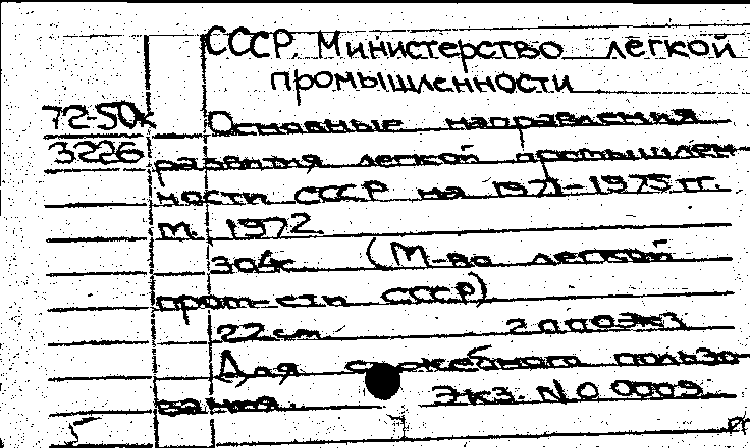 СССР. Министерство легкой
промышленности
72-50к Основные направления
3226 развития легкой промышлен-
ности СССР на 1971-1975 гг.
М. 1972.
304с. (М-во легкой
пром-сти СССР)
22 см
Для служебного пользо-
вания. Экз. № 00009.